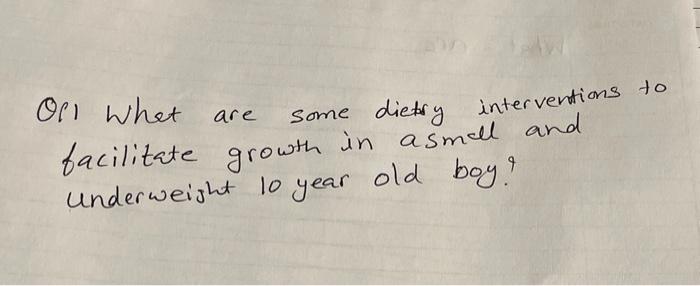 Q(1 What are some dietry interventions to
facilitate growth in a small and
underweight 10 year old boy?